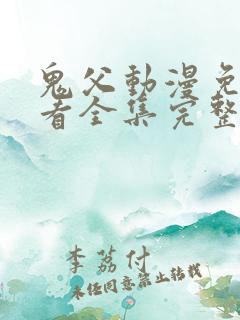 鬼父動漫免
看全集完整
李荔付
未经同意禁止转载